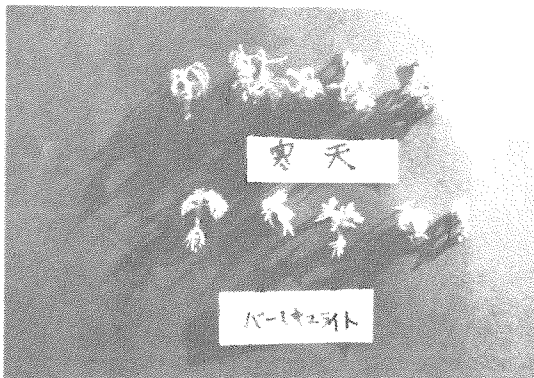 寒天
バーミキュライト